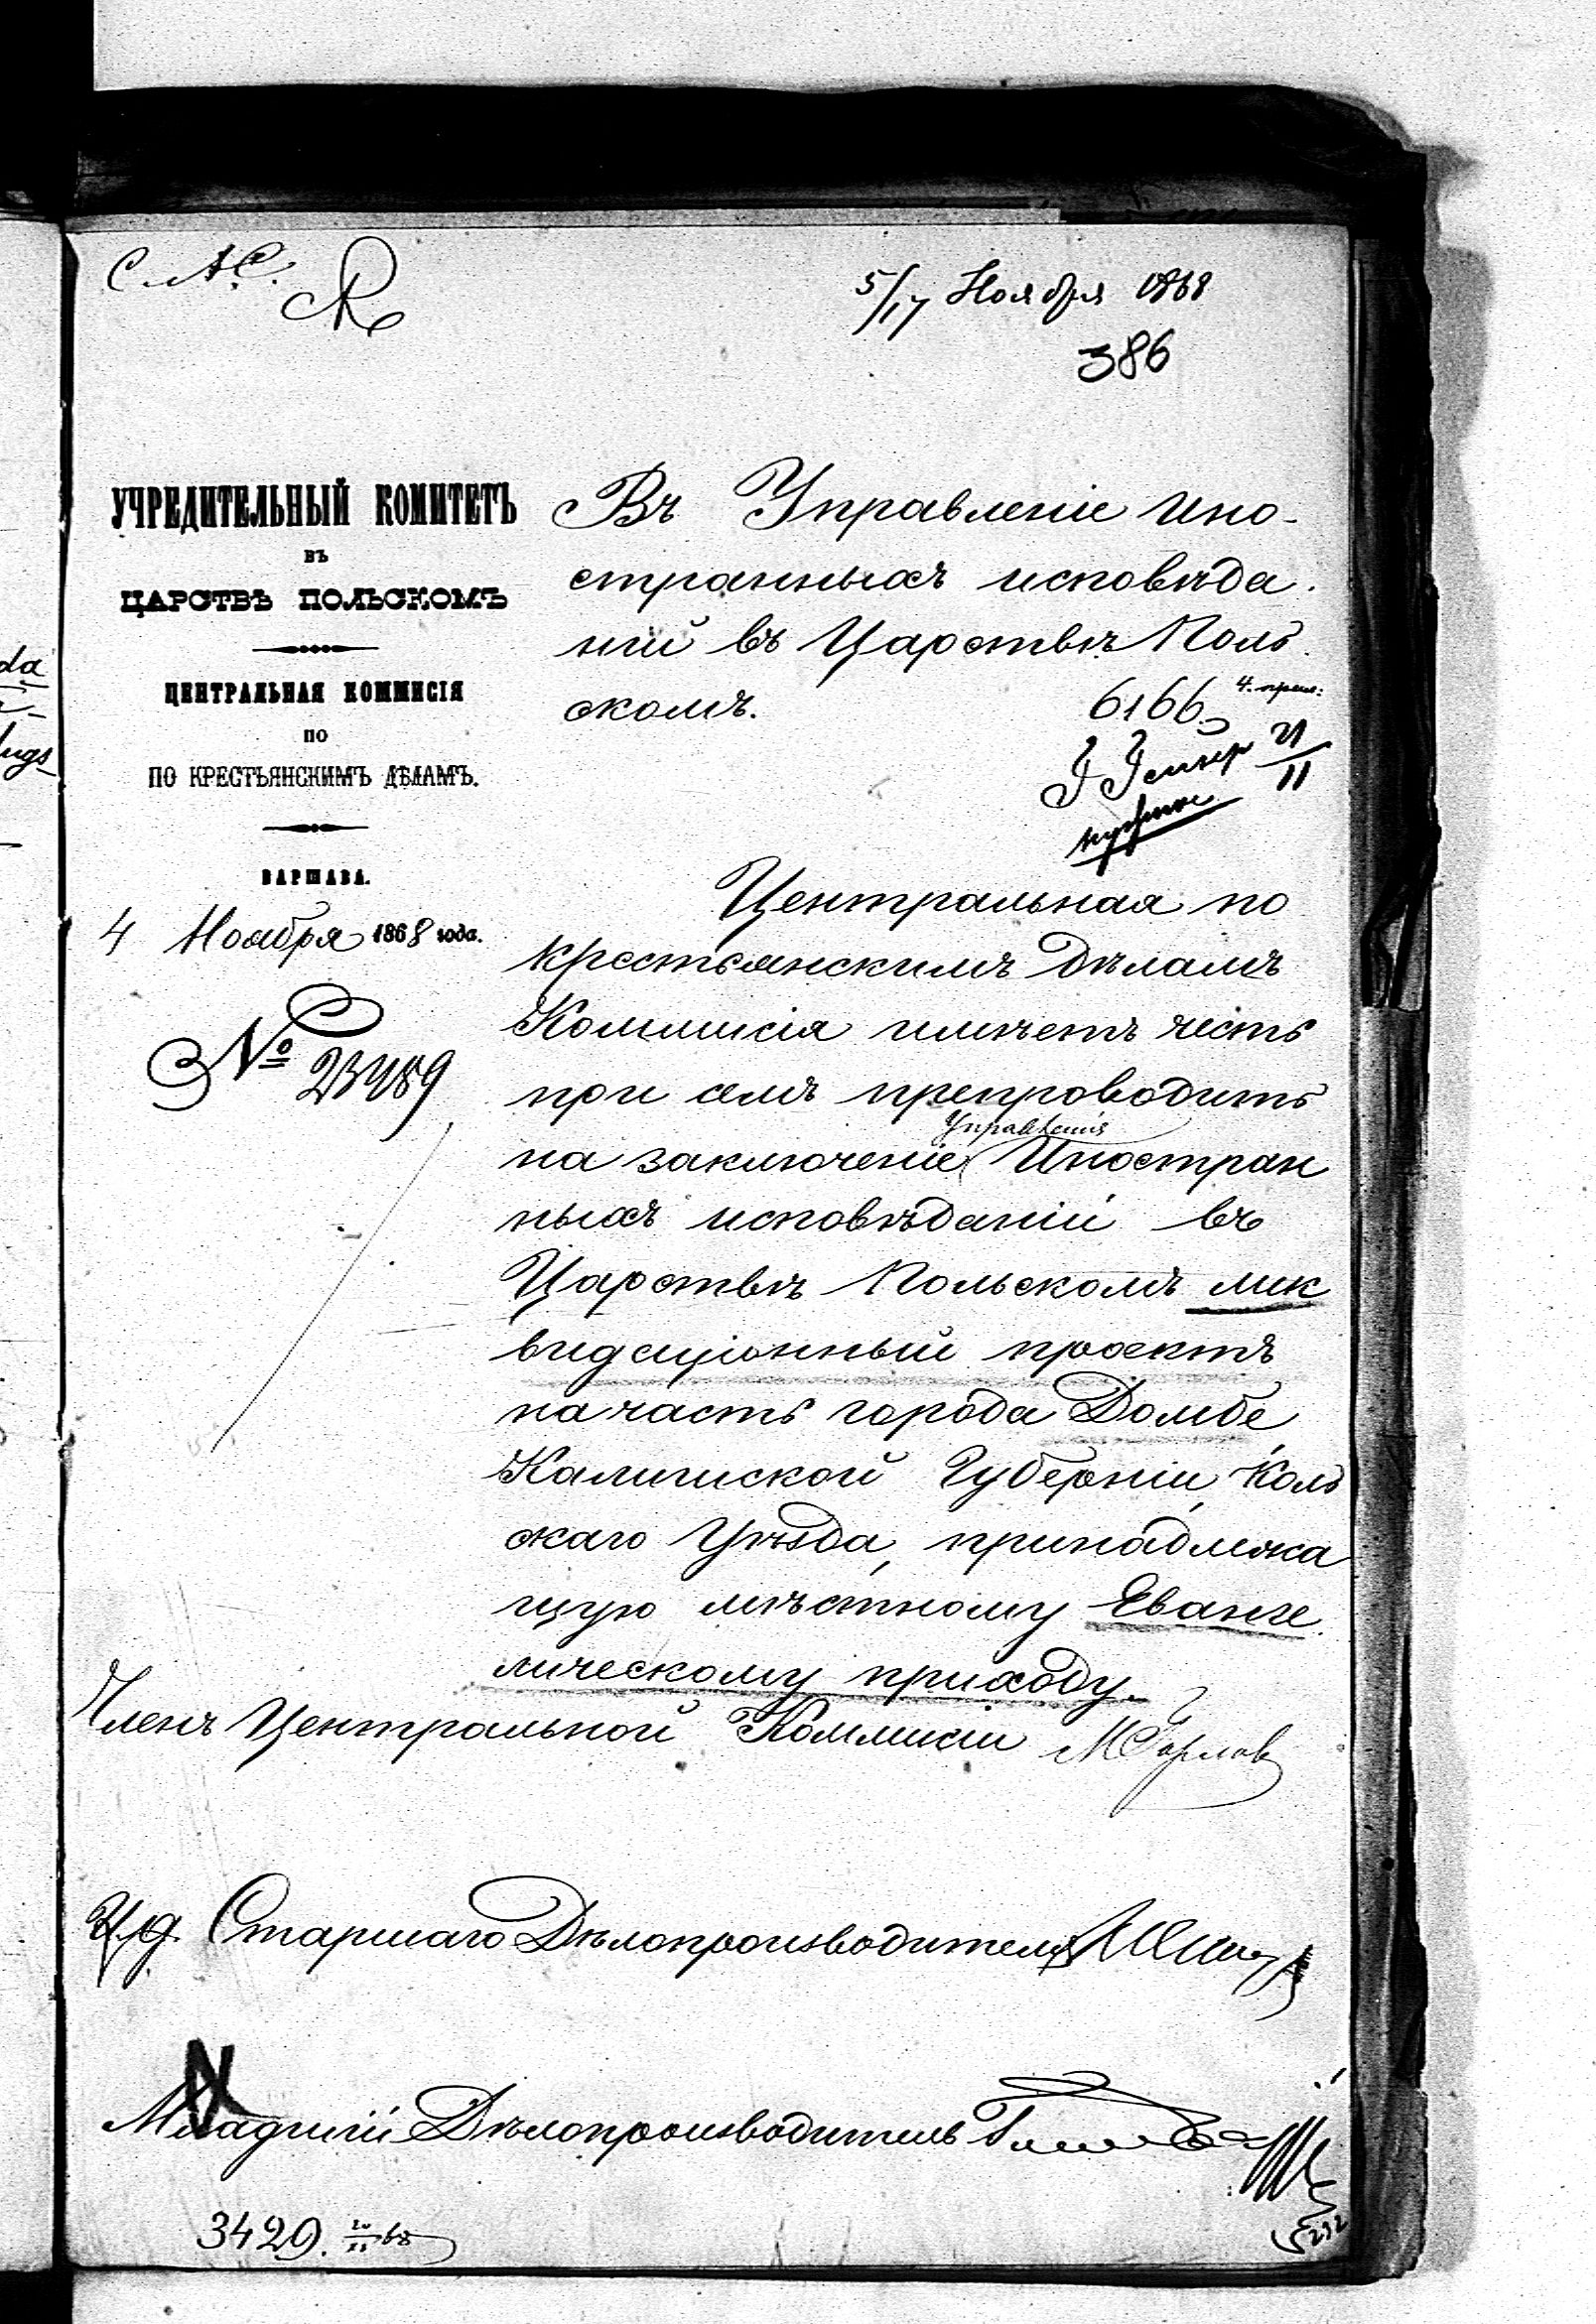 С. А. С.
5/17 Ноября 1868
386
УЧРЕДИТЕЛЬНЫЙ КОМИТЕТЪ
ВЪ
ЦАРСТВѢ ПОЛЬСКОМЪ
ЦЕНТРАЛЬНАЯ КОММИСІЯ
ПО
ПО КРЕСТЬЯНСКИМЪ ДѢЛАМЪ.
ВАРШАВА.
4 Ноября 1868 года.
№ 23489
Въ Управленіе Ино-
странныхъ исповѣда-
ній въ Царствѣ Поль
скомъ.
6166
4. прил:
21/11
Центральная по
крестьянскимъ дѣламъ
Коммисія имѣетъ честь
при семъ препроводить
Управленія
на заключеніе Иностран
ныхъ исповѣданій въ
Царствѣ Польскомъ лик
видаціонный проектъ
на часть города Домбе
Калишской Губерніи, Коль
скаго Уѣзда, принадлежа
щую мѣстному Еванге
лическому приходу.
Членъ Центральной Коммисіи
И. д. Старшаго Дѣлопроизводителя
Младшій Дѣлопроизводитель
3429.
292
da
lugs